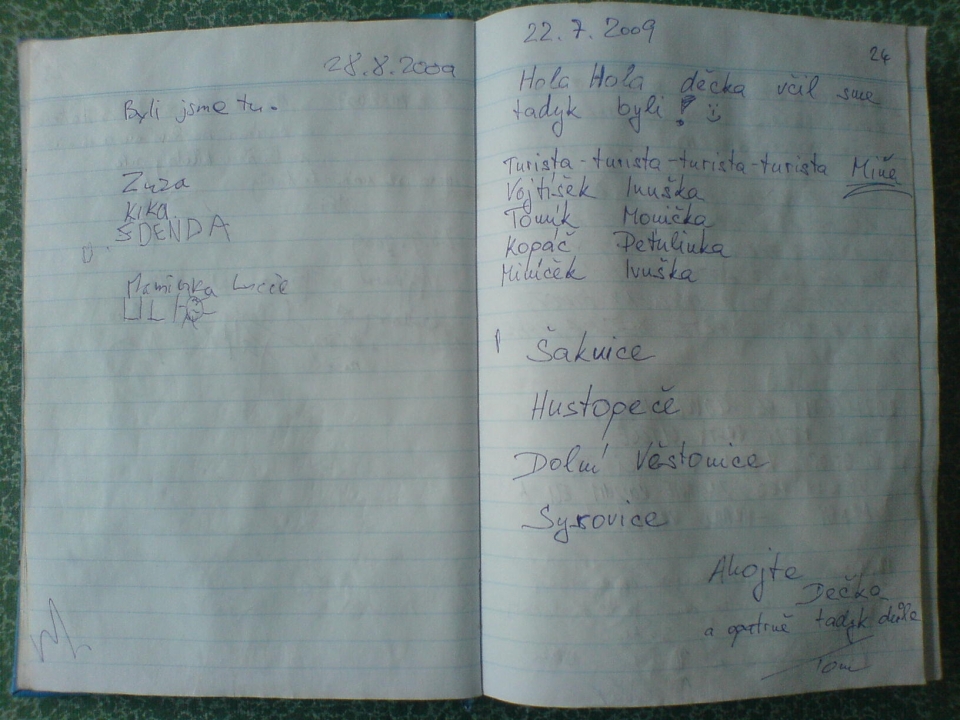 28.8.2009
Byli jsme tu.
Zuza
KIKA
ŠDENDA
Maminka Lucie
22.7.2009
24
Hola Hola děcka včil sme
tadyk byli !
Turista-turista-turista-turista Míňa
Vojtíšek Inuška
Tomík Monička
Kopáč Petulinka
Milíček Ivuška
Šakvice
Hustopeče
Dolní Věstonice
Syrovice
Ahojte
Děčka
a opatrně tadyk dole
Tom